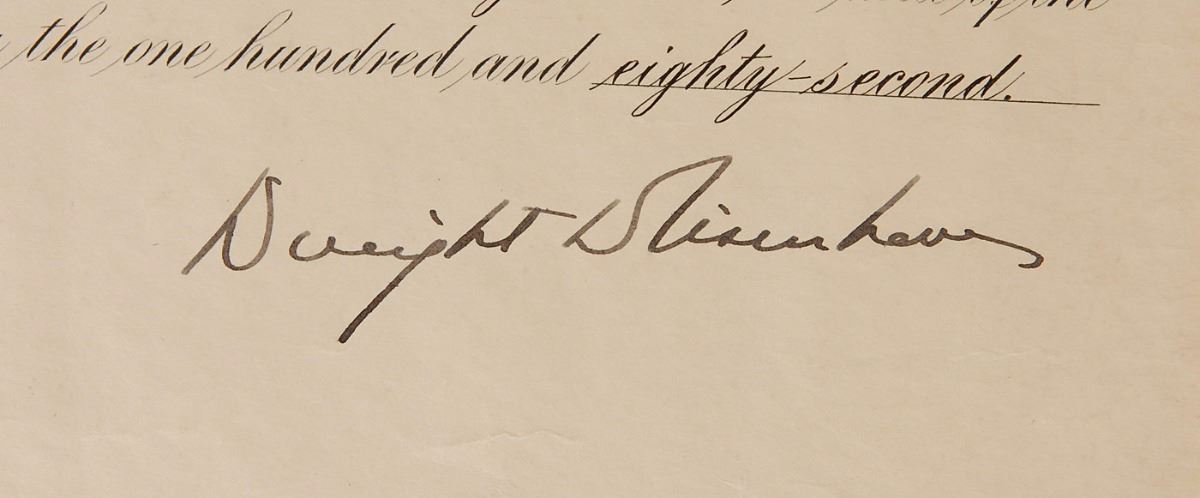 of the
the one hundred and eighty-second.
Dwight D Eisenhower